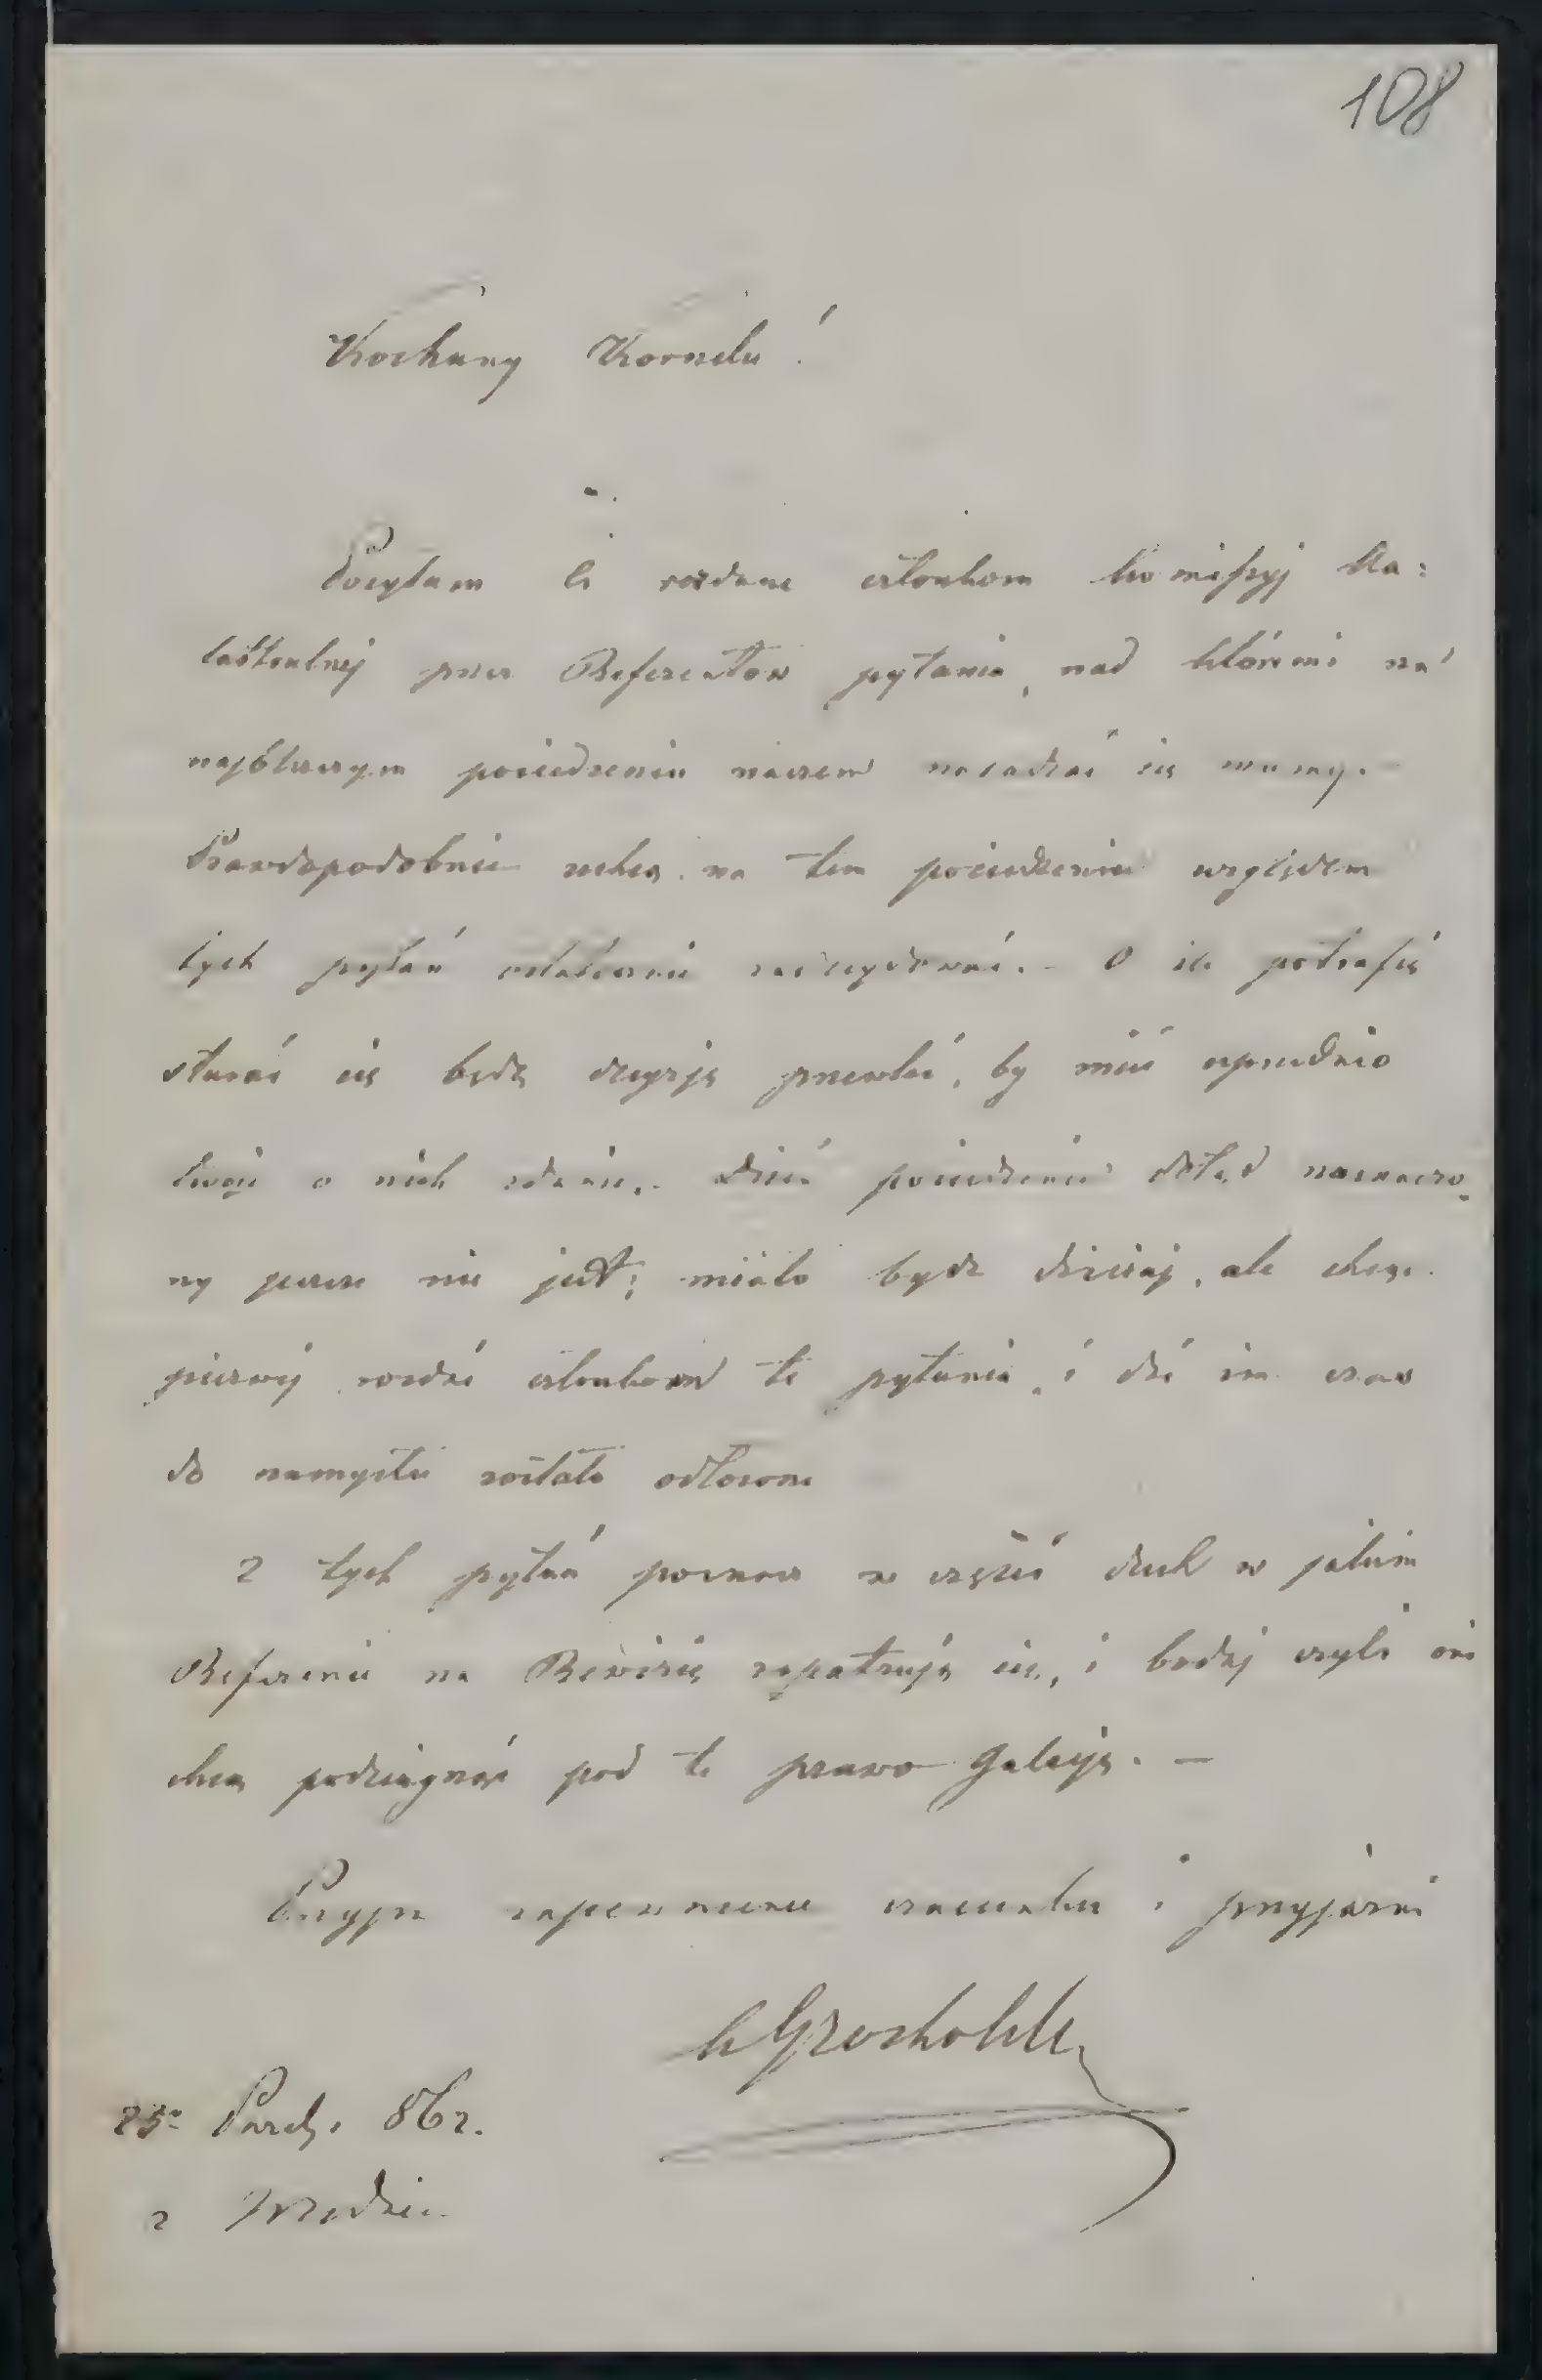 108
Kochany Kornelu!
Posyłam Ci rozdane członkom komissyj ka:
tastralnej przez Referentow pytania, nad któremi na
najbliższym posiedzeniu naszem naradzać się mamy.
Prawdopodobnie zechcą na tem posiedzeniu względem
tych pytań ostatecznie zadecydować. – O ile potrafię
starać się będę decyzję przewlec, by mieć uprzednio
twoje o nich zdanie. – Dzień posiedzenia dotąd naznaczo-
ny jeszcze nie jest; miało bydz dzisiaj, ale chcąc
pierwej rozdać członkom te pytania, i dać im czas
do namysłu zostało odłożone
Z tych pytań poznasz w części duch w jakim
Referenci na Rewizię zapatrują się, i bodaj czyli oni
chcą podciągnąć pod te prawo Galicyę. —
Przyjm zapewnienie szacunku i przyjaźni
Grocholski
25º Paźdz. 862.
z Wiednia